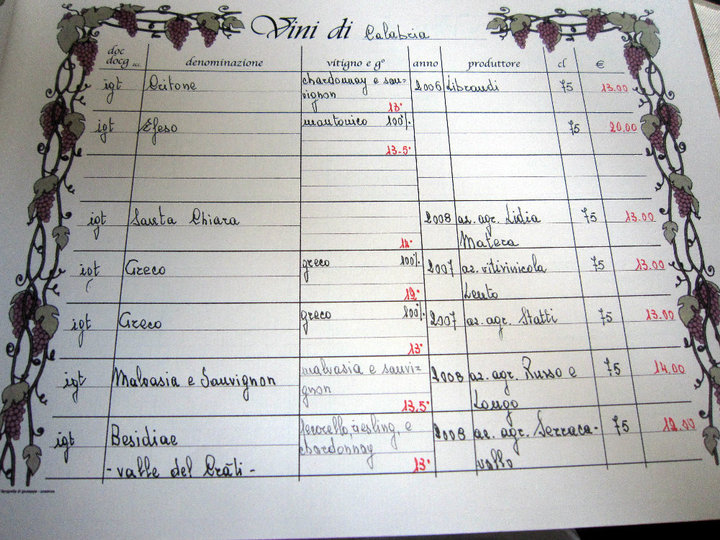 Vini di Calabria
doc docg ... denominazione vitigno e g° anno produttore cl €
igt Critone chardonnay e sau-
vignon 2006 Librandi 75 13.00
13°
igt Efeso mantonico 100% 75 20.00
13.5°
igt Santa Chiara 2008 az. agr. Lidia 75 13.00
Matera
igt Greco greco 100% 2007 az. vitivinicola 75 13.00
12° Lento
igt Greco greco 100% 2007 az. agr. Statti 75 13.00
13°
igt Malvasia e Sauvignon malvasia e sauvi-
gnon 2008 az. agr. Russo e 75 14.00
13,5° Longo
igt Besidiae riesling e 2008 az. agr. Serraca- 75 12.00
- valle del Crati - chardonnay 13° vallo